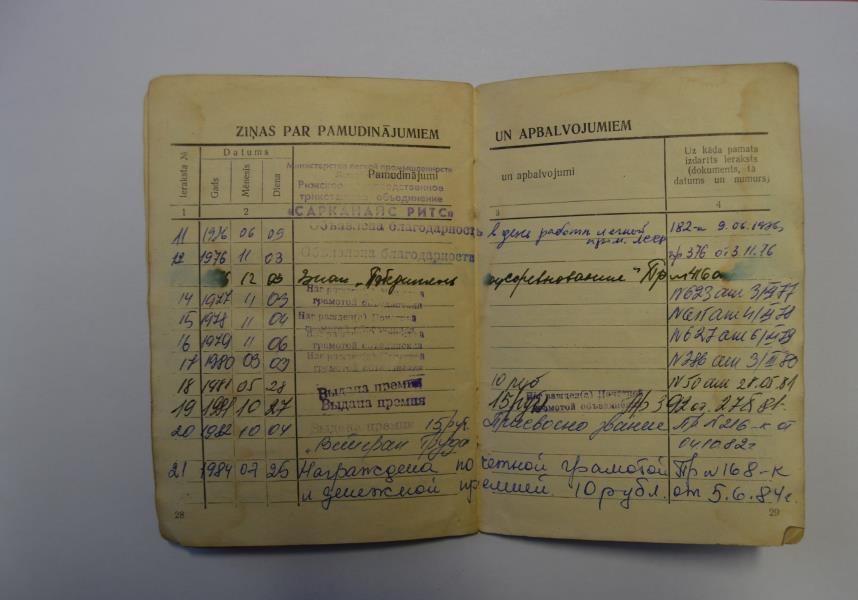 ZIŅAS PAR PAMUDINĀJUMIEM UN APBALVOJUMIEM
Ieraksta №
Datums
Gads
Mēnesis
Diena
Министерство легкой промышленности
Рижское
трикотажное объединение
«САРКАНАЙС РИТС»
Pamudinājumi
un apbalvojumi
Uz kāda pamata
izdarīts ieraksts
(dokuments, tā
datums un numurs)
1 2 3 4
11 1976 06 09 Объявлена благодарность в день работн. легкой 182-к 9.06.1976
12 1976 11 03 Объявлена благодарность пр 376 от 3.11.76
12 03 Знак „Победитель соцсоревнования" Пр №416а
14 1977 11 03 Награжден(а) Почетной грамотой объединения №623 от 3/XI 77
15 1978 11 04 Награжден(а) Почетной от 4/XI 78
16 1979 11 06 грамотой объединения №627 от 6/XI 79
17 1980 03 03 Награжден(а) Почетной №286 от 3/III 80
18 1981 05 28 Выдана премия 10 руб №50 от 28.05.81
19 1981 10 27 Выдана премия 15 руб Награжден(а) Почетной грамотой объединения Пр 392 от 27.X 81г.
20 1982 10 04 Выдана премия 15 руб. Присвоено звание Пр №216-к от
„Ветеран Труда 04.10.82г
21 1984 07 25 Награждена почетной грамотой Пр №168-к
и денежной премией 10 рубл. от 5.6.84г.
28
29